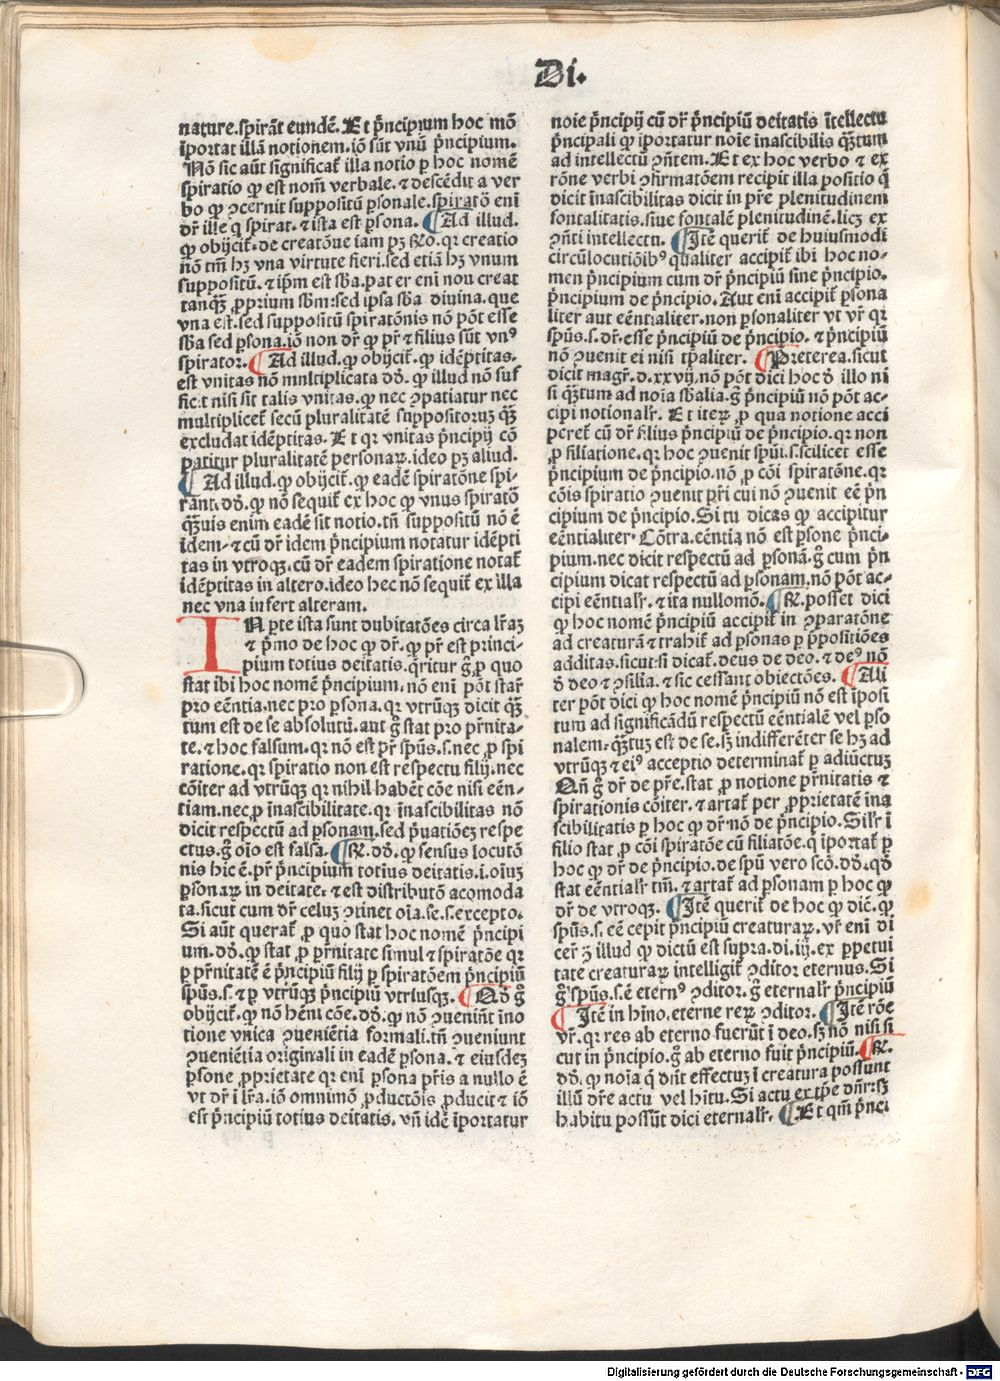 Di.
nature.spirãt eundẽ. Et p̃ncipium hoc mõ
ĩportat illã notionem.iõ sũt vnũ p̃ncipium.
Nõ sic aũt significat̃ illa notio p hoc nomẽ
spiratio qꝫ est nom̃ verbale.⁊ descẽdit a ver
bo qꝫ ꝯcernit suppositũ psonale.spiratõ enĩ
dr̃ ille q̃ spirat.⁊ ista est psona. Ad illud.
qꝫ obijcit̃.de creatõue iam pꝫ Ro.qꝛ creatio
nõ tm̃ hꝫ vna virtute fieri.sed etiã hꝫ vnum
suppositũ.⁊ ip̃m est sb̃a.pater enĩ nou creat
tanqꝫ̃ ꝓprium sb̃m:sed ipsa sb̃a diuina.que
vna est.sed suppositũ spiratõnis nõ põt esse
sb̃a sed psona.iõ non dr̃ qꝫ pr̃ ⁊ filius sũt vnꝰ
spirator. Ad illud.qꝫ obijcit̃.qꝫ idẽptitas.
est vnitas nõ mnltiplicata dõ.qꝫ illud nõ suf
ficit nisi sit talis vnitas.qꝫ nec ꝯpatiatur nec
multiplicet̃ secũ pluralitatẽ suppositoruꝫ qꝫ̃
excludat idẽptitas. Et qꝛ vnitas p̃ncipij cõ
patitur pluralitatẽ personaꝝ.ideo pꝫ aliud.
Ad illud.qꝫ obijcit̃.qꝫ eadẽ spiratõne spi-
rant.dõ.qꝫ nõ sequit̃ ex hoc qꝫ vnus spiratõ
qꝫ̃uis enim eadẽ sit notio.tñ suppositũ nõ ẽ
idem.⁊ cũ dr̃ idem p̃ncipium notatur idẽpti
tas in vtroqꝫ.cũ dr̃ eadem spiratione notat̃
idẽptitas in altero.ideo hec nõ sequit̃ ex illa
nec vna infert alteram.
IN pte ista sunt dubitatões circa lr̃aꝫ
⁊ p̃mo de hoc qꝫ dr̃.qꝫ pr̃ est princi-
pium totius deitatis.q̃ritur g̃ ꝓ quo
stat ibi hoc nomẽ p̃ncipium.nõ enĩ põt star̃
pro eẽntia.nec pro psona.qꝛ vtrũqꝫ dicit qꝫ̃
tum est de se absolutũ.aut g̃ stat pro pr̃nita-
te.⁊ hoc falsum.qꝛ nõ est pr̃ spũs.s.nec ꝓ spi
ratione.qꝛ spiratio non est respectu filij.nec
cõiter ad vtrũqꝫ qꝛ nihil habẽt cõe nisi eẽn-
tiam.nec ꝓ ĩnascibilitate.qꝛ ĩnascibilitas nõ
dicit respectũ ad psonam.sed p̃uatiõeꝫ respe
ctus.g̃ oĩo est falsa. R̃.dõ.qꝫ sensus locutõ
nis hic ẽ.pr̃ p̃ncipium totius deitatis.i.oĩuꝫ
psonaꝝ in deitate.⁊ est distributõ acomoda
ta.sicut cum dr̃ celuꝫ ꝯtinet oĩa.se.s.excepto.
Si aũt querat̃ ꝓ quo stat hoc nomẽ p̃ncipi
um.dõ.qꝫ stat ꝓ pr̃nitate simul ⁊ spiratõe qꝛ
p pr̃nitatẽ ẽ p̃ncipiũ filij p spiratõem p̃ncipiũ
spũs.s.⁊ p vtrũqꝫ p̃ncipiũ vtriusqꝫ. Qõ g̃
obijcit̃.qꝫ nõ hẽnt cõe.dõ.qꝫ nõ ꝯueniũt ĩno
tione vnica ꝯueniẽtia formali.tñ ꝯueniunt
ꝯueniẽtia originali in eadẽ psona.⁊ eiusdeꝫ
psone ꝓprietate qꝛ enĩ psona pr̃is a nullo ẽ
vt dr̃ ĩ lr̃a.iõ omnimõ ꝓductõis ꝓducit ⁊ iõ
est p̃ncipiũ totius deitatis. vñ idẽ ĩportatur
noĩe p̃ncipij cũ dr̃ p̃ncipiũ deitatis ĩtellectu
p̃ncipali qꝫ ĩportatur noĩe ĩnascibilis qꝫ̃tum
ad intellectũ ꝯñtem. Et ex hoc verbo ⁊ ex
rõne verbi ꝯfirmatõem recipit illa positio q̃
dicit ĩnascibilitas dicit in pr̃e plenitudinem
fontalitatis.siue fontalẽ plenitudinẽ.licꝫ ex
ꝯñti intellectu. Itẽ querit̃ de huiusmodi
circũlocutiõibꝰ qualiter accipit̃ ibi hoc no-
men p̃ncipium cum dr̃ p̃ncipiũ sine p̃ncipio.
p̃ncipium de p̃ncipio. Aut enĩ accipit̃ psona
liter aut eẽntialiter.non psonaliter vt vr̃ qꝛ
spũs.s.dr̃.esse p̃ncipiũ de p̃ncipio.⁊ p̃ncipiũ
nõ ꝯuenit ei nisi tp̃aliter. Preterea.sicut
dicit magr̃.d.xxvij.nõ põt dici hoc õ illo nĩ
si qꝫ̃tum ad noĩa sb̃alia.g̃ p̃ncipiũ nõ põt ac-
cipi notionalr̃. Et iteꝝ ꝓ qua notione acci
peret̃ cũ dr̃ filius p̃ncipiũ de p̃ncipio.qꝛ non
ꝓ filiatione.qꝛ hoc ꝯuenit spũi.s.scilicet esse
p̃ncipium de p̃ncipio.nõ ꝓ cõi spiratõne.qꝛ
cõis spiratio ꝯuenit pr̃i cui nõ ꝯuenit eẽ p̃n
cipium de p̃ncipio. Si tu dicas qꝫ accipitur
eẽntialiter. Cõtra.eẽntia nõ est psone p̃nci-
pium.nec dicit respectũ ad psonã.g̃ cum p̃n
cipium dicat respectũ ad psonam.nõ põt ac-
cipi eẽntialr̃.⁊ ita nullomõ. R̃.posset dici
qꝫ hoc nomẽ p̃ncipiũ accipit̃ in ꝯparatõne
ad creaturã ⁊ trahit̃ ad psonas p p̃positiões
additas.sicut si dicat̃.deus de deo.⁊ deꝰ nõ
õ deo ⁊ ꝯsilia.⁊ sic cessant obiectões. Ali
ter põt dici qꝫ hoc nomẽ p̃ncipiũ nõ est ĩposi
tum ad significãdũ respectũ eẽntialẽ vel pso
nalem.qꝫ̃tuꝫ est de se.sꝫ indifferẽter se hꝫ ad
vtrũqꝫ ⁊ eiꝰ acceptio determinat̃ p adiũctuꝫ
Qñ g̃ dr̃ de pr̃e.stat ꝓ notione pr̃nitatis ⁊
spirationis cõiter.⁊ artat̃ per ꝓprietatẽ ĩna
scibilitatis p hoc qꝫ dr̃ nõ de p̃ncipio. Silr̃ ĩ
filio stat ꝓ cõi spiratõe cũ filiatõe.q̃ ĩportat̃ p
hoc qꝫ dr̃ de p̃ncipio.de spũ vero scõ.dõ.qõ
stat eẽntialr̃ tm̃.⁊ artat̃ ad psonam p hoc qꝫ
dr̃ de vtroqꝫ. Itẽ querit̃ de hoc qꝫ diẽ.qꝫ
spũs.s.eẽ cepit p̃ncipiũ creaturaꝝ.vr̃ enĩ di
cer̃ ꝫ̃ illud qꝫ dictũ est supra.di.iij.ex ppetui
tate creaturaꝝ intelligit̃ ꝯditor eternus. Si
g̃ spũs.s.ẽ eternꝰ ꝯditor.g̃ eternalr̃ p̃ncipiũ
Itẽ in hĩno.eterne reꝝ ꝯditor. Itẽ rõe
vr̃.qꝛ res ab eterno fuerũt ĩ deo.sꝫ nõ nisi si
cut in p̃ncipio.g̃ ab eterno fuit p̃ncipiũ. R̃.
dõ.qꝫ noĩa q̃ dñt effectuꝫ ĩ creatura possunt
illũ dr̃e actu vel hĩtu. Si actu ex tp̃e dñr:sꝫ
habitu possũt dici eternalr̃. Et qm̃ p̃nci
Digitalisierung gefördert durch die Deutsche Forschungsgemeinschaft - DFG